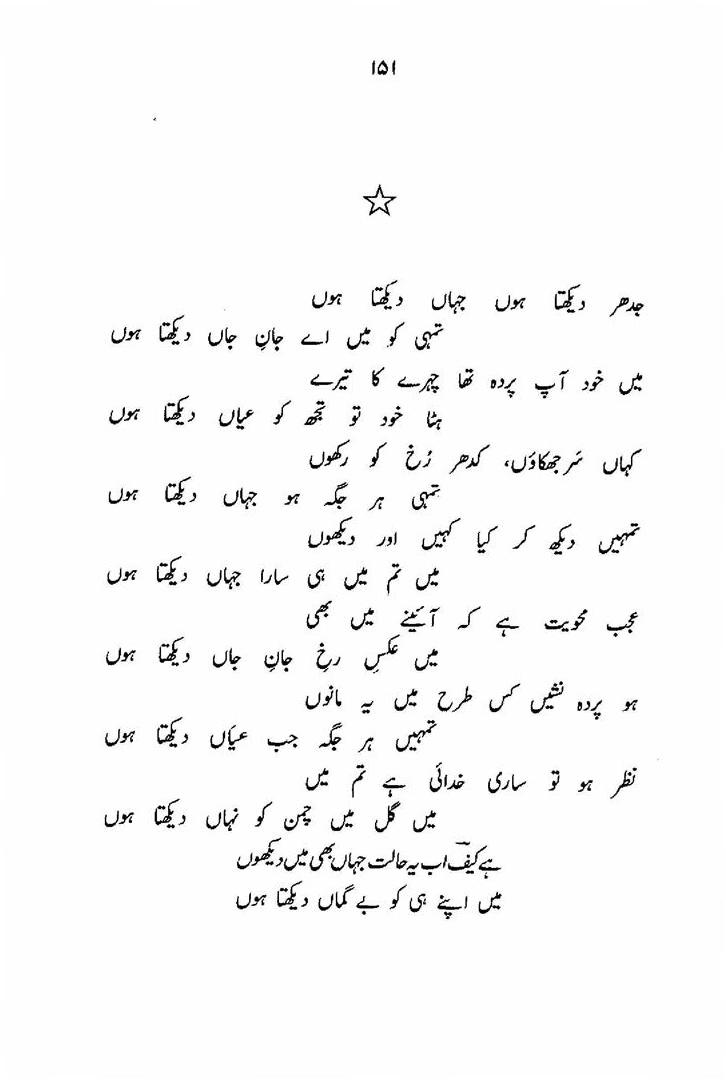 ۱۵۱
جدھر دیکھتا ہوں جہاں دیکھتا ہوں
تمہی کو میں اے جانِ جاں دیکھتا ہوں
میں خود آپ پردہ تھا چہرے کا تیرے
ہٹا خود تو تجھ کو عیاں دیکھتا ہوں
کہاں سَر جھکاؤں، کدھر رُخ کو رکھوں
تمہی ہر جگہ ہو جہاں دیکھتا ہوں
تمہیں دیکھ کر کیا کہیں اور دیکھوں
میں تم میں ہی سارا جہاں دیکھتا ہوں
عجب محویت ہے کہ آئینے میں بھی
میں عکسِ رخِ جانِ جاں دیکھتا ہوں
ہو پردہ نشیں کس طرح میں یہ مانوں
تمہیں ہر جگہ جب عیاں دیکھتا ہوں
نظر ہو تو ساری خدائی ہے تم میں
میں گل میں چمن کو نہاں دیکھتا ہوں
ہے کیفؔ اب یہ حالت جہاں بھی میں دیکھوں
میں اپنے ہی کو بے گماں دیکھتا ہوں